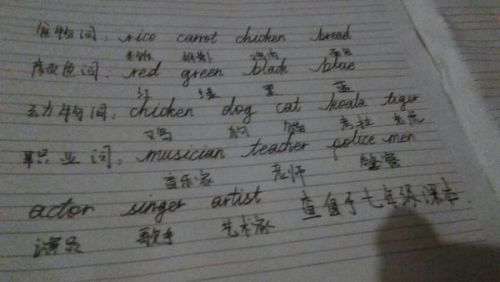 食物词: rice carrot chicken bread
米饭 胡萝卜 鸡肉 面包
颜色词: red green black blue
红 绿 黑 蓝
动物词: chicken dog cat koala tiger
鸡 狗 猫 考拉 老虎
职业词: musician teacher police men
音乐家 老师 警察
actor singer artist 查自于七年级课本.
演员 歌手 艺术家